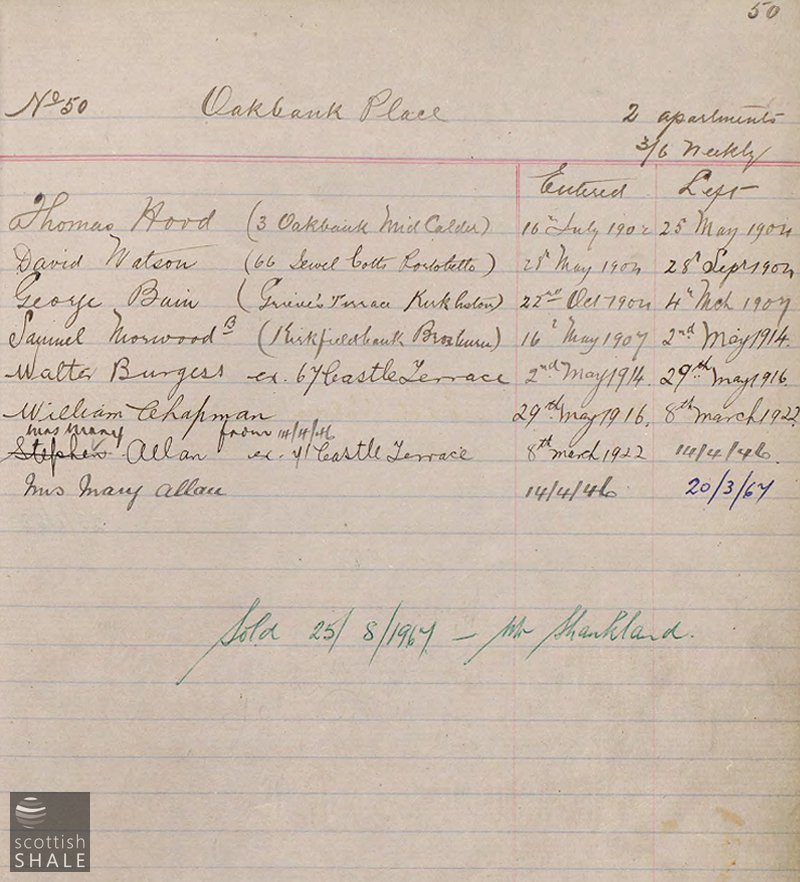 50
No 50 Oakbank Place 2 apartments
3/6 Weekly
Entered Left
Thomas Hood (3 Oakbank Mid Calder) 16th July 1902 25 May 1904
David Watson (66 Jewel Cotts Portobello) 28th May 1904 28th Sept 1904
George Bain (Grieve's Terrace Kirkliston) 22nd Oct 1904 4th Mch 1907
Samuel Norwood B (Kirkfieldbank Broxburn) 16th May 1907 2nd May 1914.
Walter Burgess ex. 67 Castle Terrace 2nd May 1914. 29th May 1916.
William Chapman 29th May 1916. 8th March 1922.
Mrs Mary from 14/4/46
Stephen Allan ex. 41 Castle Terrace 8th March 1922 14/4/46.
Mrs Mary Allan 14/4/46 20/3/67
Sold 25/8/1967 – Mr Shankland.
scottish
SHALE